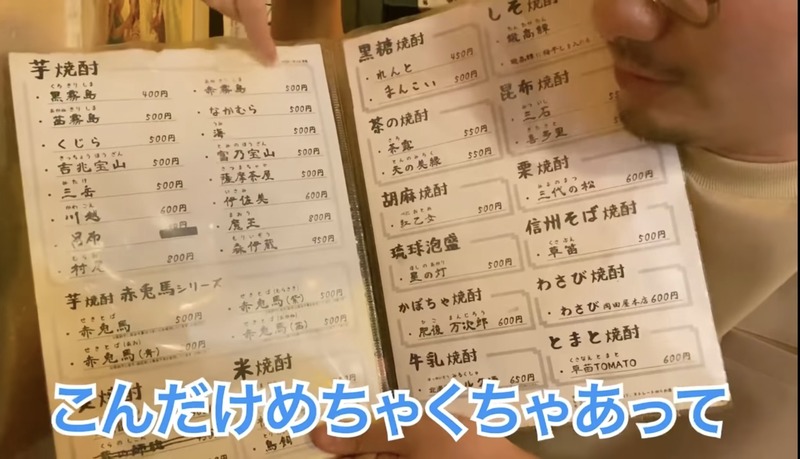 芋焼酎
黒霧島 400円
茜霧島 500円
くじら 500円
吉兆宝山 500円
三岳 500円
川越 600円
呂布
村尾 200円
赤霧島 500円
なかむら 500円
海 500円
富乃宝山 500円
薩摩茶屋 500円
伊佐美 600円
魔王 800円
森伊蔵 950円
芋焼酎 赤兎馬シリーズ
赤兎馬 500円
赤兎馬(青)
赤兎馬(紫) 500円
500円
米焼酎
黒糖焼酎
れんと 450円
まんこい 500円
茶の焼酎
550円
天の美緑 550円
胡麻焼酎
紅乙女 500円
琉球泡盛
星の灯 500円
かぼちゃ焼酎
肥後 万次郎 600円
牛乳焼酎
650円
しそ焼酎
鍛高譚
昆布焼酎
三石
喜多里
栗焼酎
三代の松 600円
信州そば焼酎
草笛 500円
わさび焼酎
わさび 岡田屋本店 600円
とまと焼酎
草笛TOMATO 600円
こんだけめちゃくちゃあって